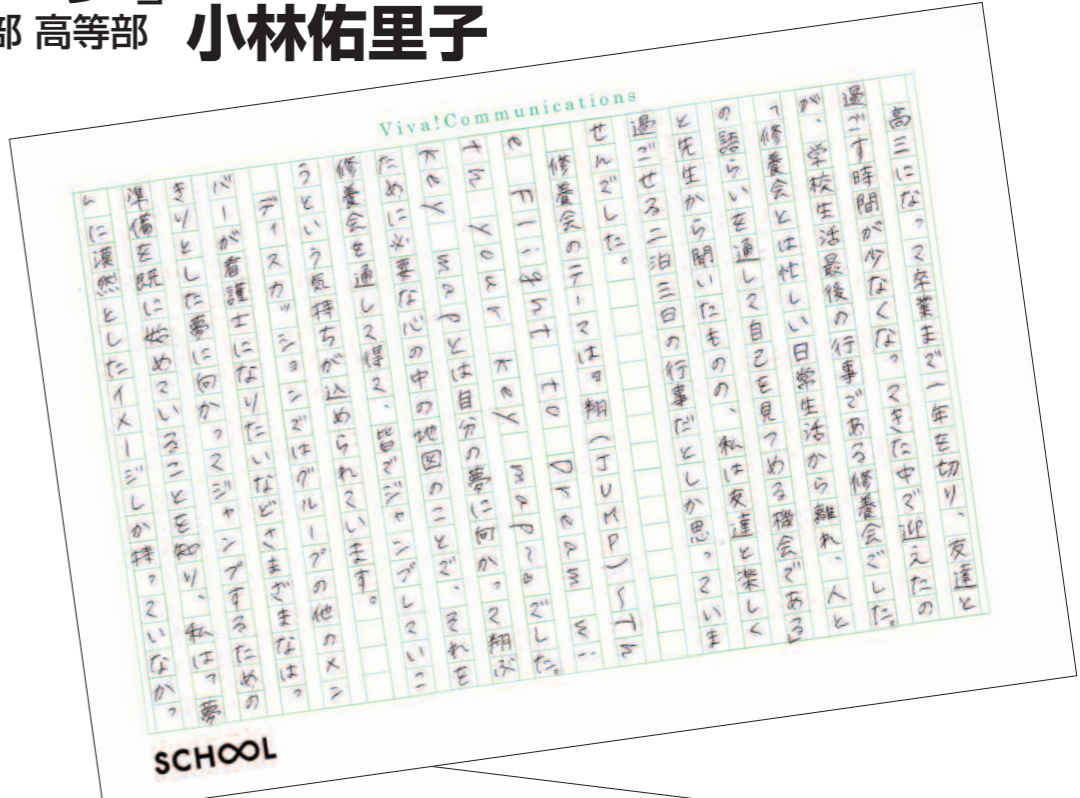 部 高等部 小林佑里子
Viva!Communications
高三になって卒業まで一年を切り、友達と
過ごす時間が少なくなってきた中で迎えたの
が、学校生活最後の行事である修養会でした。
「修養会とは忙しい日常生活から離れ、人と
の語らいを通して自己を見つめる機会である」
と先生から聞いたものの、私は友達と楽しく
過ごせる二泊三日の行事だとしか思っていま
せんでした。
修養会のテーマは『翔(JUMP)〜Tak
e Flight to Dream wi
th your key map〜』でした。
key mapとは自分の夢に向かって翔ぶ
ために必要な心の中の地図のことで、それを
修養会を通して得て、皆でジャンプしていこ
うという気持ちが込められています。
ディスカッションではグループの他のメン
バーが看護士になりたいなどさまざまなはっ
きりとした夢に向かってジャンプするための
準備を既に始めていることを知り、私は「夢
」に漠然としたイメージしか持っていなかっ
SCHOOL